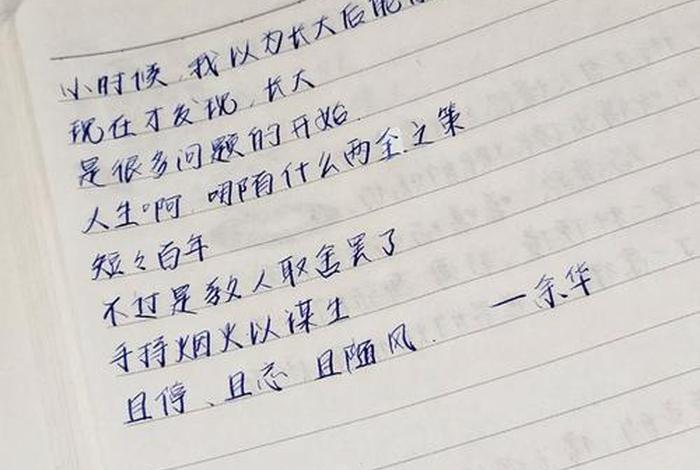 小时候,我以为长大后能
现在才发现,长大
是很多问题的开始.
人生啊,哪有什么两全之策
短々百年
不过是教人取舍罢了
手持烟火以谋生
且停、且忘 且随风. —余华